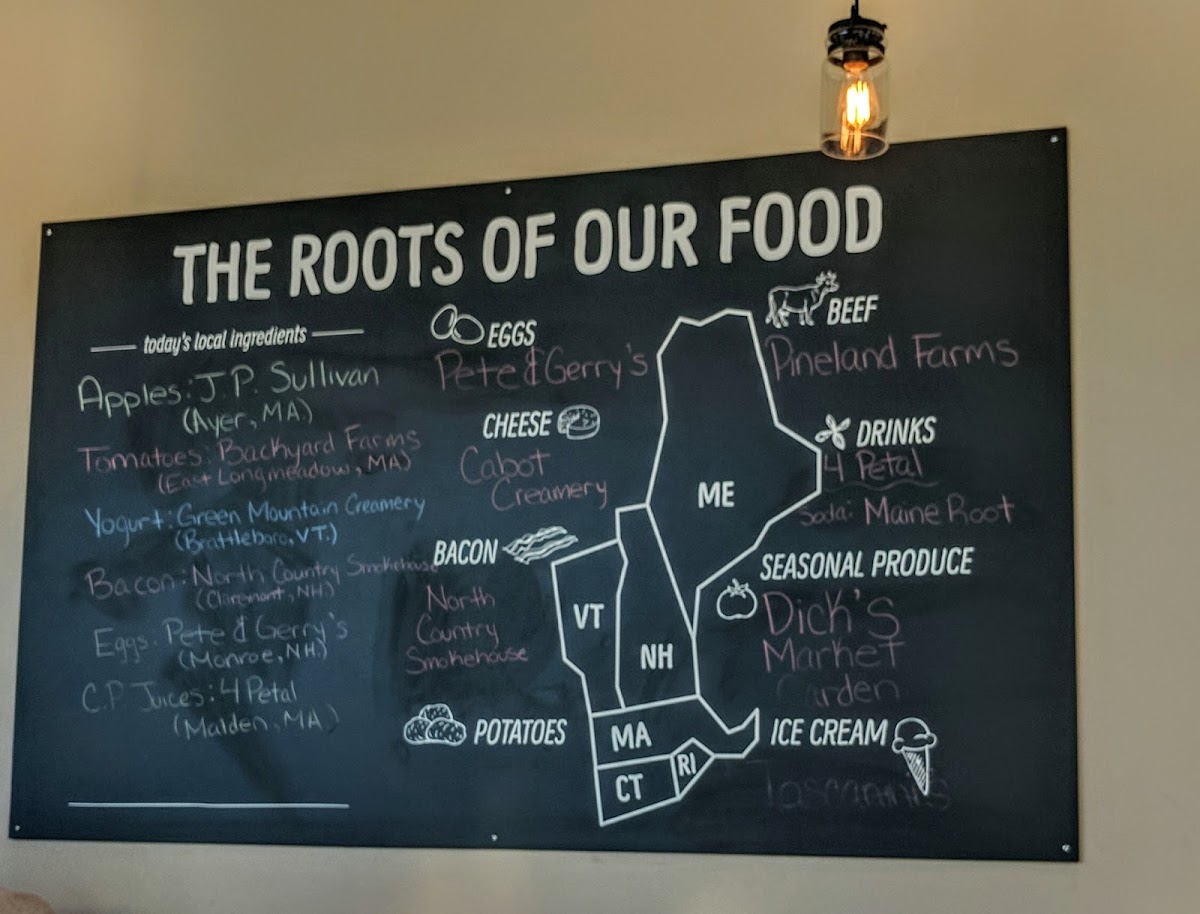 THE ROOTS OF OUR FOOD
today's local ingredients
Apples: J.P. Sullivan
(Ayer, MA)
Tomatoes: Backyard Farms
(East Longmeadow, MA)
Yogurt: Green Mountain Creamery
(Brattleboro, VT.)
Bacon: North Country Smokehouse
(Claremont, NH)
Eggs: Pete & Gerry's
(Monroe, NH)
C.P. Juices: 4 Petal
(Malden, MA)
EGGS
Pete & Gerry's
CHEESE
Cabot
Creamery
BACON
North
Country
Smokehouse
POTATOES
ME
VT
NH
MA
CT
RI
BEEF
Pineland Farms
DRINKS
4 Petal
Soda: Maine Root
SEASONAL PRODUCE
Dick's
Market
Garden
ICE CREAM